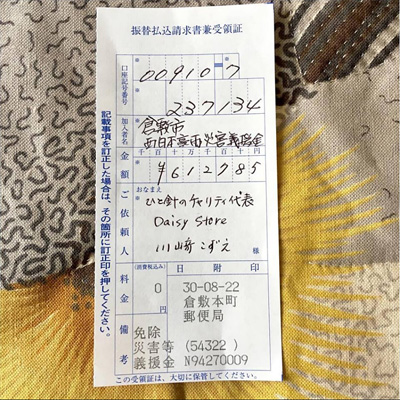 振替払込請求書兼受領証
口座記号番号
00910-7
237134
加入者名
倉敷市
西日本豪雨災害義援金
金額
千百十万千百十円
¥612785
ご依頼人
おなまえ
ひと針のチャリティ代表
Daisy Store
川﨑こずえ
様
料金
(消費税込み)
0
円
日附印
30-08-22
倉敷本町
郵便局
備考
免除
災害等 (54322)
義援金 N94270009
この受領証は、大切に保管してください。
記載事項を訂正した場合は、その箇所に訂正印を押してください。